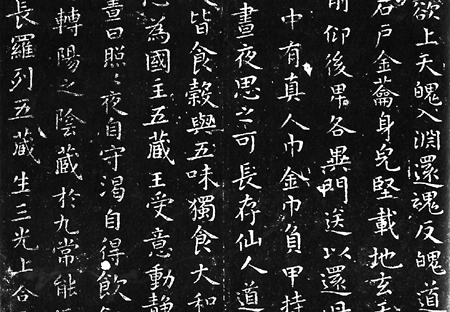 欲上天魄入淵還魂反魄道
石戶金籥身皃堅載地玄
前仰後卑各異門送以還
中有真人巾金巾負甲持
晝夜思之可長存仙人道
皆食穀與五味獨食大和
為國王五藏王受意動靜
晝日照〻夜自守渴自得飲
轉陽之陰藏於九常能
長羅列五藏生三光上合